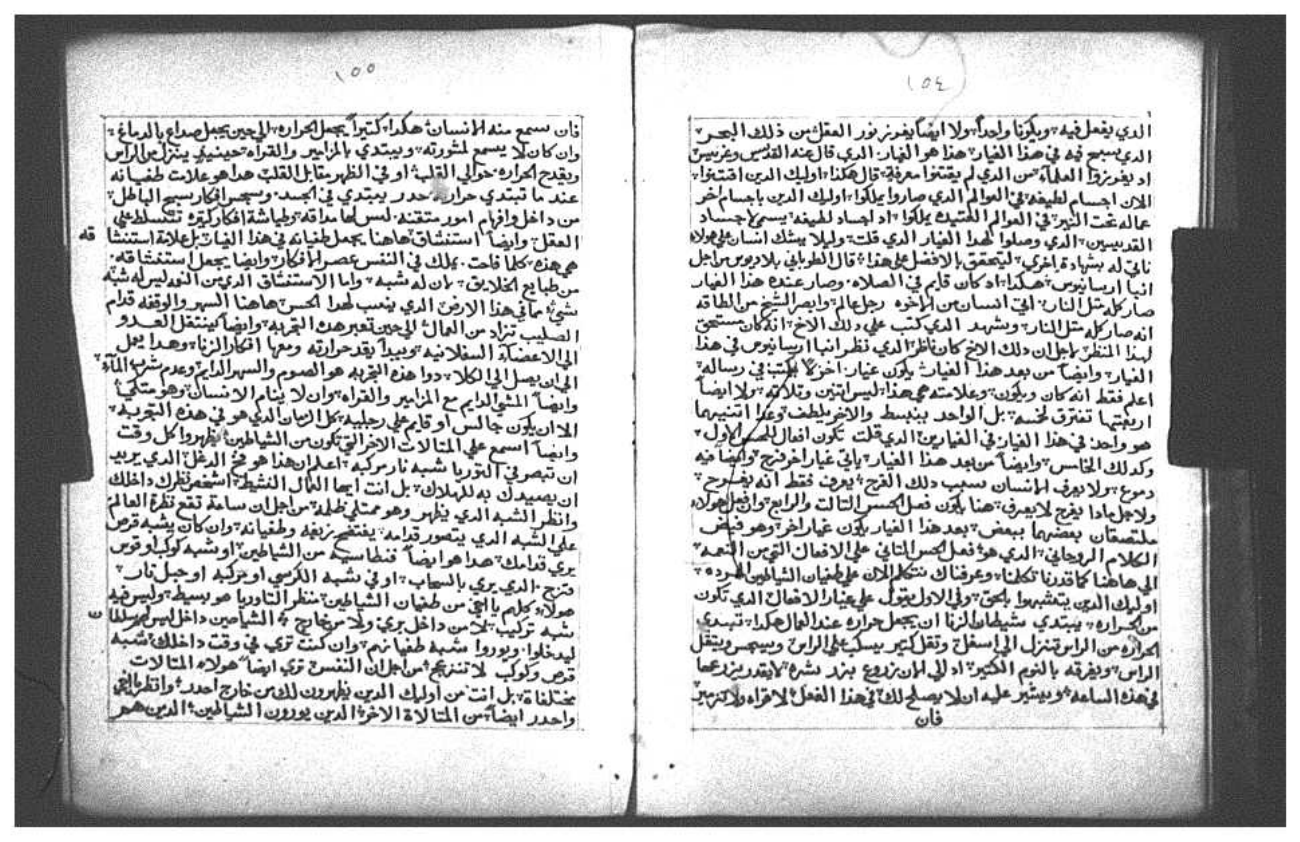 ١٥٤
الدي يفعل فيه ويكونا واحداً ولا ايضاً يفوز نور العقل من ذلك البحر
الدي يسبح فيه في هذا الغيار هذا هو الغيار الدي قال عنه القديس وغريس
اد يفوز نرقا العلماء من الدي لم يقتنوا معرفة قال هكذا اوليك الدين اقتنوا
الان اجسام لطيفه في العوالم الدي صاروا يملكوا اوليك الدين باجسام اخر
عماله تحت النير في العوالم العتيده يملكوا اد اجساد لطيفه يسمي اجساد
القديسين الدي وصلوا لهدا الغيار الدي قلت وليلا يشك انسان علي هولاء
ناتي له بشهادة اخري ليتحقق بالافضل علي هذا قال الطوباني بلاديوس من اجل
انبا ارسانيوس هكدا اد كان قايم في الصلاه وصار عنده هذا الغيار
صار كله مثل النار اتي انسان من الاخوه رجل عالم وابصر الشيخ من الطاقه
انه صار كله متل النار ويشهد الدي كتب علي دلك الاخ انه كان مستحق
لهدا المنظر من اجل ان دلك الاخ كان ناظر الدي نظر انبا ارسانيوس في هذا
الغيار وايضاً من بعد هدا الغيار يكون غيار اخر لا يكتب في رساله
اعلم فقط انه كان ويكون وعلامته هي هدا ليس اتنين وتلاته ولا ايضاً
اربعتها تفترق لخسه بل الواحد ينبسط والاخر يلطف وعدا اتنينهما
هو واحد في هذا الغيار في الغيارين الدي قلت تكون افعال للحس الاول
وكدلك الخامس وايضاً من بعد هدا الغيار ياتي غيار اخر فرح وايضاً فيه
دموع ولا يعرف الانسان سبب دلك الفرح يعرف فقط انه يفرح
ولاجل مادا يفرح لا يعرف هنا يكون فعل الحس التالت والرابع وان افعل هولاء
ملتصقان بعضهما ببعض بعد هذا الغيار يكون غيار اخر وهو فيض
الكلام الروحاني الدي هو فعل الحس التاني علي الافعال التي من النعمه
الي هاهنا كما قدرنا تكلمنا وعرفناك نتكلم الان علي طغيان الشياطين المرده
اوليك الدين يتشبهوا بالحق وفي الاول نقول علي غيار الافعال الدي تكون
من الحراره يبتدي شيطان الزنا ان يجعل حراره عند العمال هكدا تبتدي
الحراره من الراس تنزل الي اسفل وتقل كتير يسكب علي الراس ويسجس ويتقل
الراس ويغرقه بالنوم الكتير اد الي الان زروع بزر شره لا يقدر يزرعها
في هذه الساعه ويشير عليه ان لا يصلح لك في هذا الفعل لا قراه ولا تزمير
فان
١٥٥
فان سمع منه الانسان هكدا كتيراً يجعل الحراره الي حين يجعل صداع بالدماغ
وان كان لا يسمع لمشورته ويبتدي بالمزامير والقراه حينيد ينزل من الراس
ويقدح الحراره حوالي القلب او في الظهر مقابل القلب هدا هو علامت طغيانه
عند ما تبتدي حراره حدر يبتدي في الجسد وسجس افكار سبح الباطل
من داخل وافهام امور متقنه ليس لها مداقه وطياشة افكار كتيره تتسلط علي
العقل وايضاً استنشاق هاهنا يجعل طغيانه في هذا الغيار بل علامة استنشا
قه
هي هده كلما فاحت يملك في النفس عصر الافكار وايضا يجعل استنشاقه
من طبايع الخلايق لان له شبه واما الاستنشاق الدي من النور ليس له شبه
شي مما في هدا الارض الدي يتعب لهدا الحس هاهنا السهر والوقفه قدام
الصليب تزاد من العمال الي حين تعبر هده التجربه وايضاً كينتقل العدو
الي الاعضاء السفلانيه ويبدأ يقد حرارته ومعها افكار الزنا وهدا يعمل
الي ان يصل الي الكلا دوا هده التجربه هو الصوم والسهر الدايم وعدم شرب الماء
وايضاً المشي الدايم مع المزامير والقراه وان لا ينام الانسان وهو متكياً
الا ان يكون جالس او قايم علي رجليه كل الزمان الدي هو في هده التجربه
وايضاً اسمع علي المتالات الاخر التي تكون من الشياطين يظهروا كل وقت
ان تبصر في التوريا شبه نار مركبه اعلم ان هدا هو فخ الدغل الدي يريد
ان يصيدك به للهلاك بل انت ايها العمال النشيط اشخص نظرك داخلك
وانظر الشبه الدي يظهر وهو ممتلي ظلمه من اجل ان ساعة تقع نظرة العالم
علي الشبه الدي يتصور قدامه يفتضح زيغه وطغيانه وان كان يشبه قرص
يري قدامك هدا هو ايضاً فنطاسيه من الشياطين او شبه كوكب او قوس
قزح الدي يري بالسحاب او في شبه الكرسي او مركبه او جبل نار
هولاء كلهم يا اخي من طغيان الشياطين منظر التاوريا هو بسيط وليس فيه
شبه تركيب لا من داخل يري ولا من خارج الشياطين داخل ليس لهم سلطا
ن
ليدخلوا ويوروا شبة طغيانهم وان كنت تري في وقت داخلك شبه
قرص وكوكب لا تنزعج من اجل ان النفس تري ايضاً هولاء المتالات
مختلفاة بل انت من اوليك الدين يظهرون لك من خارج احدر وانظر يا اخي
واحدر ايضاً من المتالاة الاخر الدين يورون الشياطين الدين هم